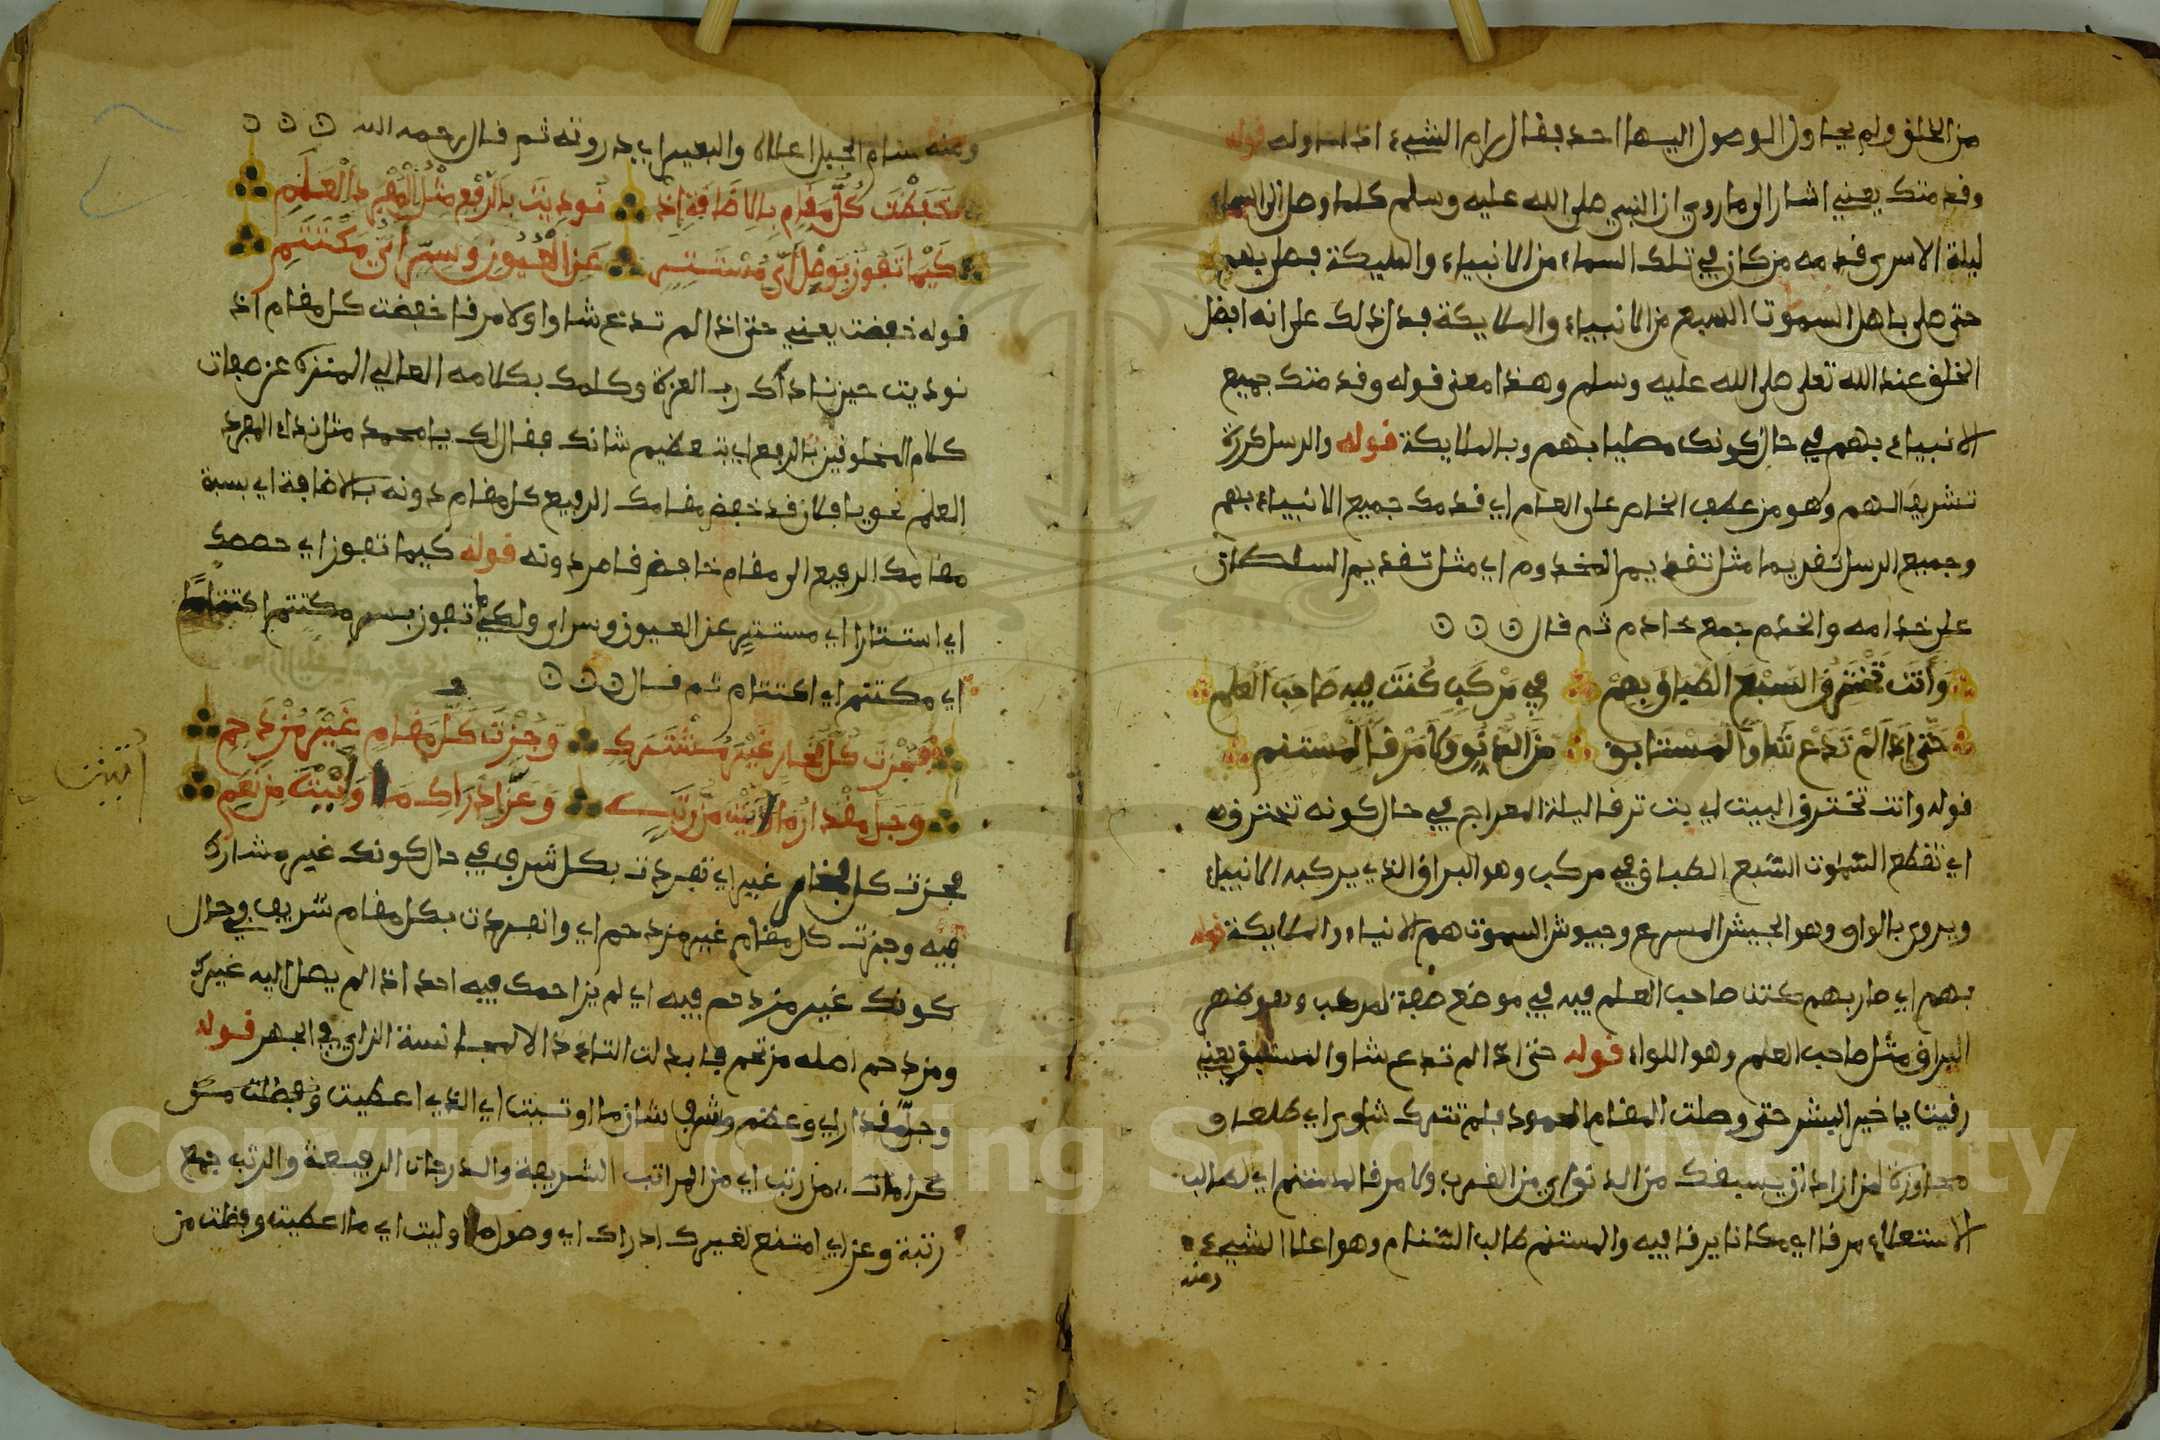 من الخلق ولم يحاول الوصول اليها احد يقال رام الشيء اذا حاوله قوله
وقدمتك يعني اشار الى ما روي ان النبي صلى الله عليه وسلم كلما وصل الى السماء
ليلة الاسرى قدمه من كان في تلك السماء من الانبياء والمليكة فصلى بهم
حتى صلى باهل السموت السبع من الانبياء والملايكة فدل ذلك على انه افضل
الخلق عند الله تعلى صلى الله عليه وسلم وهذا معنى قوله وقدمتك جميع
الانبياء بهم في حال كونك مصليا بهم وبالملايكة قوله والرسل كرره
تشريفا لهم وهو من عطف الخاص على العام اي قدمك جميع الانبياء بهم
وجميع الرسل تقديما مثل تقديم المخدوم اي مثل تقديم السلطان
على خدامه والخدم جمع خادم ثم قال
وَأَنتَ تَخْتَرِقُ السَّبْعَ الطِّبَاقَ بِهِمْ في مَرْكَبٍ كُنتَ فِيهِ صَاحِبَ الْعَلَمِ
حَتَّى إِذَا لَمْ تَدَعْ شَأْوًا لِمُسْتَابِقٍ مِنَ الدُّنُوِّ وَلَا مَرْقًا لِمُسْتَنِمِ
قوله وانت تخترق البيت اي بت ترقا ليلة المعراج في حال كونه تخترق
اي تقطع السموت السبع الطباق في مركب وهو البراق الذي يركبه الانبياء
ويروى بالواو وهو الجيش المسرع وجيوش السموت هم الانبياء والملايكة قوله
بهم اي مار بهم كنت صاحب العلم فيه في موضع صفة لمركب وهو ظهر
البراق مثل صاحب العلم وهو اللواء قوله حتى اذا لم تدع شاوا لمستبق يعني
رقيت يا خير البشر حتى وصلت المقام المحمود فلم تترك شاوا اي طلعا و
مجاوزة لمن اراد ان يسبقك من الدنو اي من القرب ولا مرقا لمستنم اي لطالب
الاستعلاء مرقا اي مكانا يرقا فيه والمستنم طالب السنام وهو اعلا الشيء
ومنه
ومنه سنام الجبل اعلاه والبعير اي دروته ثم قال رحمه الله
خَفَضْتَ كُلَّ مَقَامٍ بِالِاضَافَةِ إِذْ نُودِيتَ بِالرَّفْعِ مِثْلَ الْمُفْرَدِ الْعَلَمِ
كَيْمَا تَفُوزَ بِوَصْلٍ أَيِّ مُسْتَتِرٍ عَنِ الْعُيُونِ وَسِرٍّ أَيِّ مُكْتَتَمِ
قوله خفضت يعني حتى اذا لم تدع شاوا ولا مرقا خفضت كل مقام اذ
نوديت حين ناداك رب العزة وكلمك بكلامه العالي المنزه عن صفات
كلام المخلوقين بالرفع اي بتعظيم شانك فقال لك يا محمد مثل نداء المفرد
العلم نحو يا فلان فقد خفض مقامك الرفيع كل مقام دونه بالاضافة اي بنسبة
مقامك الرفيع الى مقام خافض قاصر دونه قوله كيما تفوز اي حصصك
اي استتارا اي مستتر عن العيون وسر اي ولكي تفوز بسر مكتتم اكتتاما
اي مكتتم اي اكتتام ثم قال
فَحُزْتَ كُلَّ فَخَارٍ غَيْرَ مُشْتَرَكٍ وَجُزْتَ كُلَّ مَقَامٍ غَيْرَ مُزْدَحَمِ
وَجَلَّ مِقْدَارُ مَا وُلِّيتَ مِنْ رُتَبٍ وَعَزَّ إِدْرَاكُ مَا أُوتِيتَ مِنْ نِعَمِ
أوتيت
فحزت كل فخار غير اي تفردت بكل شرف في حال كونك غير مشارك
فيه وجزت كل مقام غير مزدحم اي وانفردت بكل مقام شريف في حال
كونك غير مزدحم فيه اي لم يزاحمك فيه احد اذا لم يصل اليه غيرك
ومزدحم اصله مزتحم فابدلت التاء ذالا لمجانسة الزاي في الجهر قوله
وجل مقدار اي وعظم وشرف شان ما اوتيت اي الذي اعطيت وفضلت من
كرامات من رتب اي من المراتب الشريفة والدرجات الرفيعة والرتب جمع
رتبة وعز اي امتنع لغيرك ادراك اي وصول ما اوليت اي ما اعطيت وفضلت من